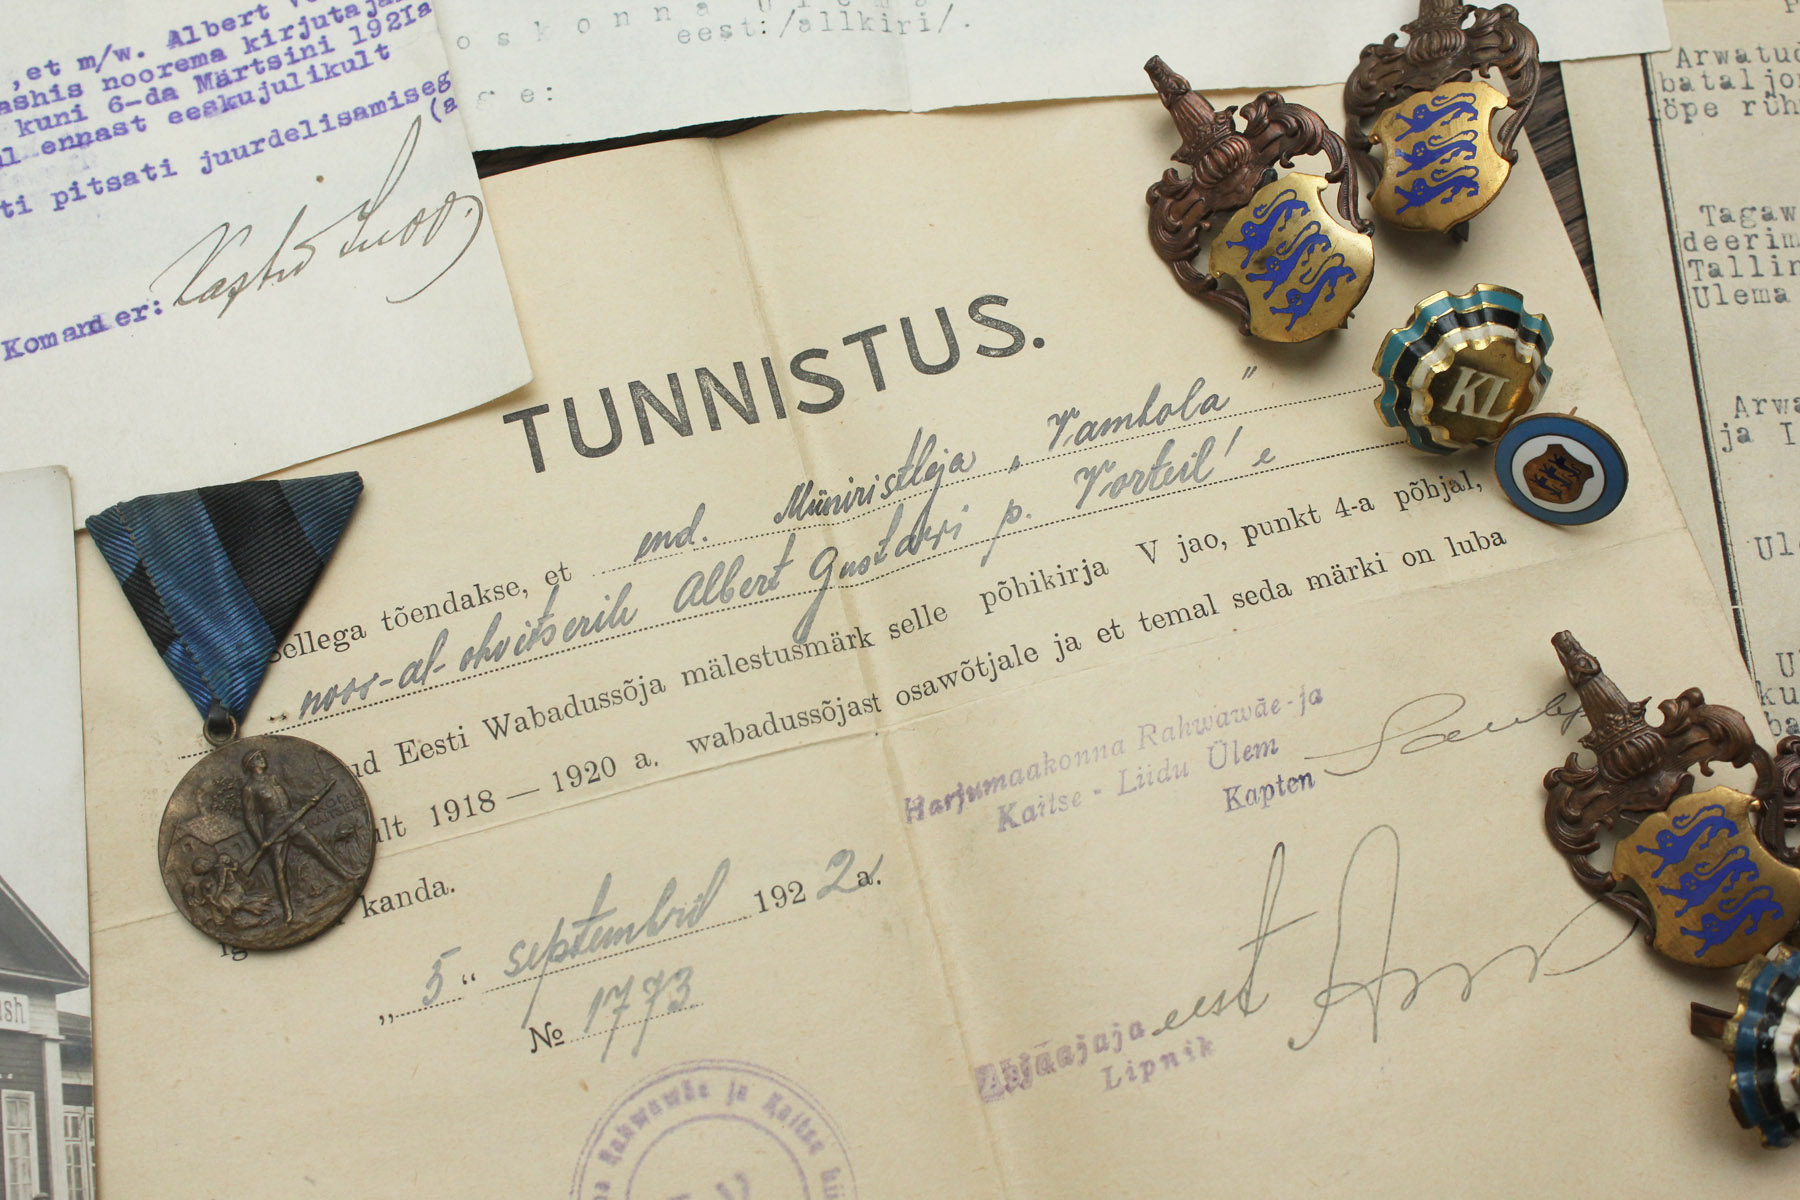 ,et m/w. Albert
noorema kirjutaja
kuni 6-da Märtsini 1921a
ennast eeskujulikult
ti pitsati juurdelisamiseg
(a
Komander:
oskonna
eest:/allkiri/.
ge:
TUNNISTUS.
Sellega tõendakse, et end. Miiniristleja „Vambola"
noor-al-ohvitserile Albert Gustavi p. Vorteil'e
ud Eesti Wabadussõja mälestusmärk selle põhikirja V jao, punkt 4-a põhjal,
ult 1918 — 1920 a. wabadussõjast osawõtjale ja et temal seda märki on luba
kanda.
„5" septembril 1922 a.
№ 1773
Harjumaakonna Rahwawäe-ja
Kaitse - Liidu Ülem
Kapten
Asjaajaja eest
Lipnik
Rahwawäe ja Kaitse
KL
Arwatud
bataljon
õpe rüh
Tagaw
deerim
Tallin
Ulema
Arwa
ja I
Ul
U
ku
ba